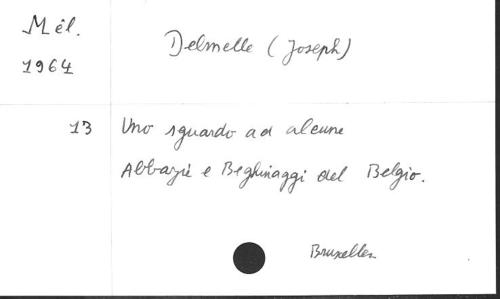 Mél.
1964
Delmelle (Joseph)
13
Uno sguardo ad alcune
Abbazie e Beghinaggi del Belgio.
Bruxelles